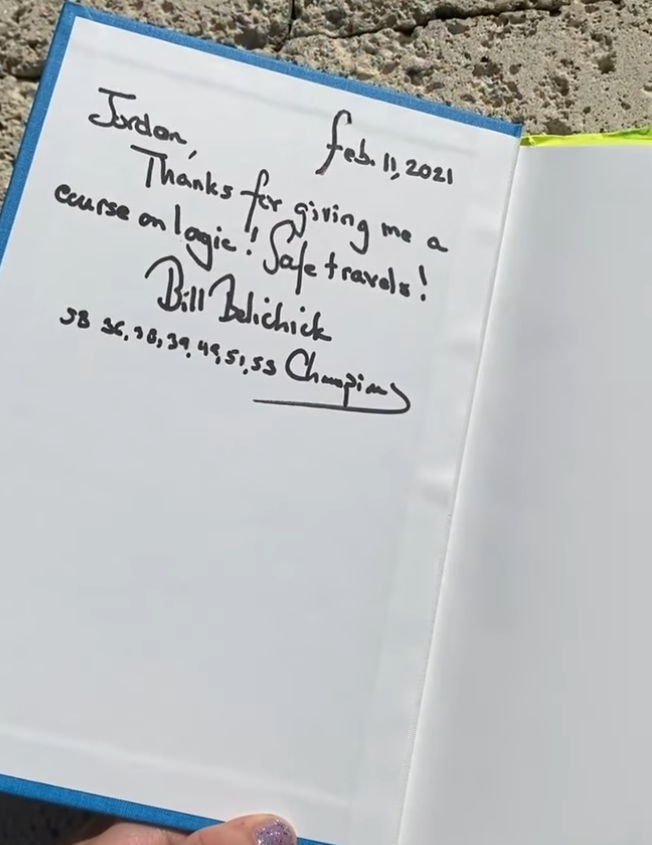 Jordon,
Feb. 11, 2021
Thanks for giving me a
course on logic! Safe travels!
Bill Belichick
SB 36, 38, 39, 49, 51, 53 Champions